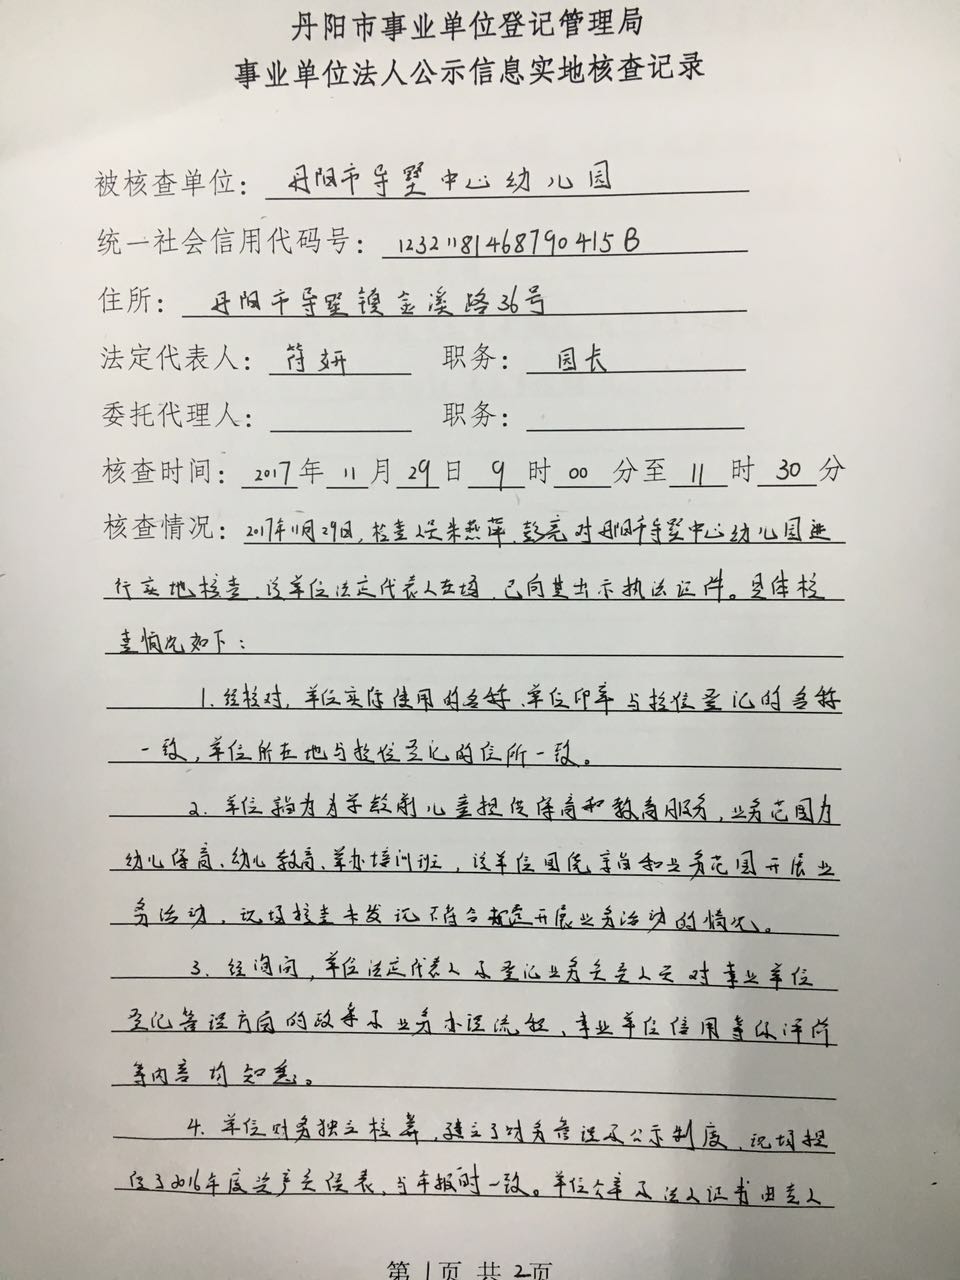 丹阳市事业单位登记管理局
事业单位法人公示信息实地核查记录
被核查单位：丹阳市导墅中心幼儿园
统一社会信用代码号：12321181468790415B
住所：丹阳市导墅镇金溪路36号
法定代表人：符妍 职务：园长
委托代理人： 职务：
核查时间：2017年11月29日9时00分至11时30分
核查情况：2017年11月29日，检查人员朱燕萍、彭亮对丹阳市导墅中心幼儿园进
行实地核查，该单位法定代表人在场，已向其出示执法证件。具体核
查情况如下：
1、经核对，单位实际使用的名称、单位印章与现位登记的名称
一致，单位所在地与现位登记的住所一致。
2、单位宗旨为为学龄前儿童提供保育和教育服务，业务范围为
幼儿保育、幼儿教育、举办培训班，该单位围绕宗旨和业务范围开展业
务活动，现场检查未发现不符合规定开展业务活动的情况。
3、经询问，单位法定代表人及登记业务负责人员对事业单位
登记管理方面的政策及业务办理流程、事业单位信用等级评价
等内容均知悉。
4、单位财务独立核算，建立了财务管理及公示制度，现场提
供了2016年度资产负债表，与年报时一致。单位公章及法人证书由专人
第1页 共2页